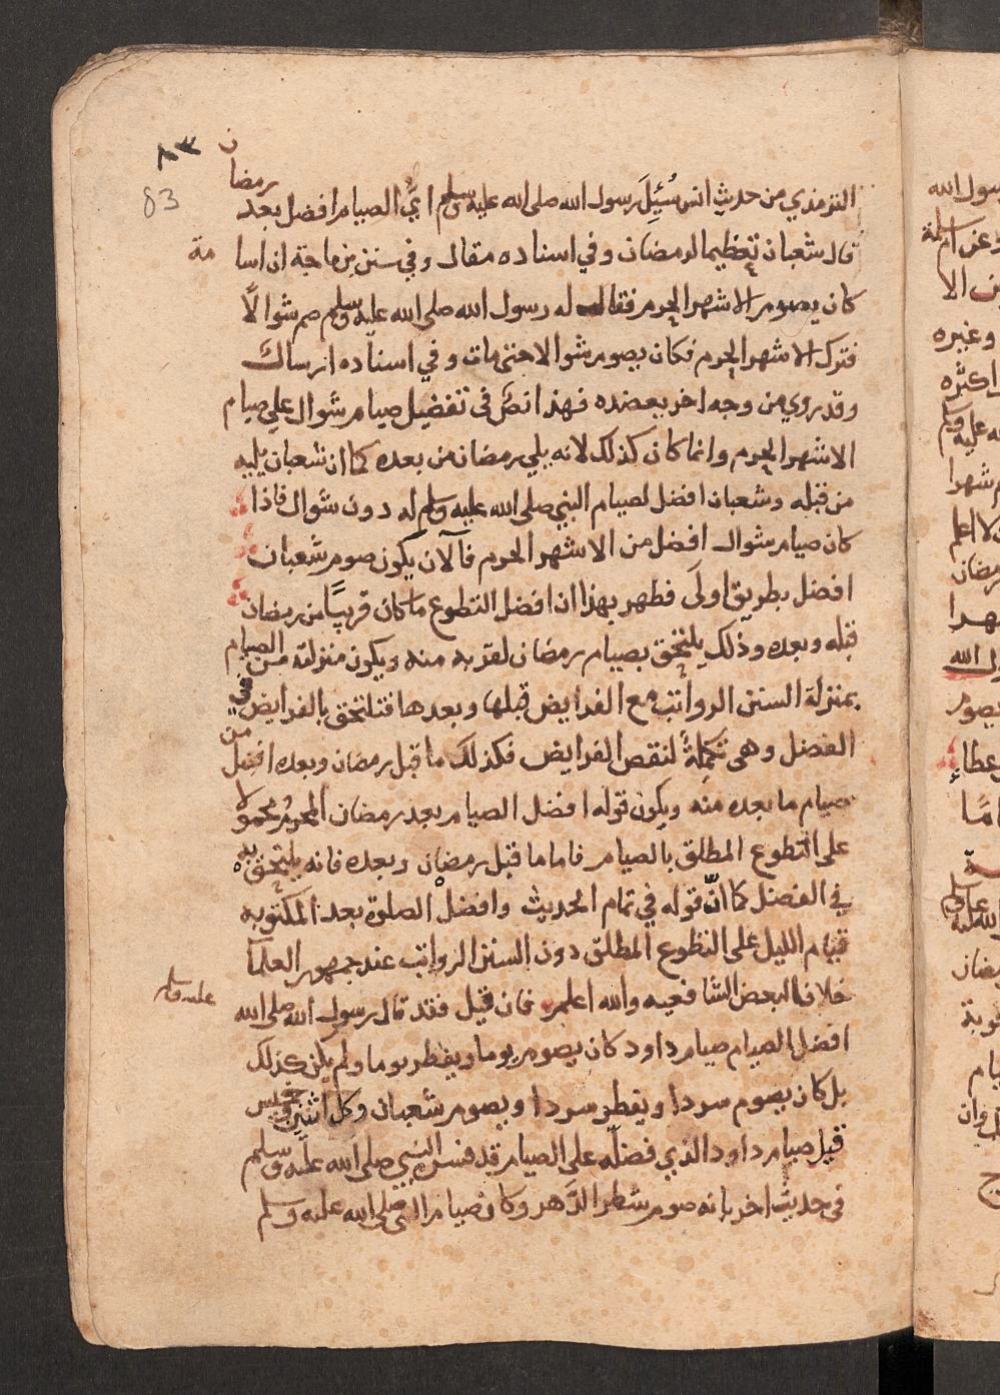 ٨٣
83
الترمذي من حديث انس سُئِلَ رسول الله صلى الله عليه وسلم ايُّ الصيام افضل بعد رمضان
قال شعبان تعظيما لرمضان وفي اسناده مقال وفي سنن بن ماجة ان اسامة
كان يصوم الاشهر الحرم فقال له رسول الله صلى الله عليه وسلم صم شوالاً
فترك الاشهر الحرم فكان يصوم شوالا حتى مات وفي اسناده ارسال
وقد روي من وجه اخر يعضده فهذا نصٌ في تفضيل صيام شوال على صيام
الاشهر الحرم وانما كان كذلك لانه يلي رمضان من بعده كما ان شعبان يليه
من قبله وشعبان افضل لصيام النبي صلى الله عليه وسلم له دون شوال فاذا
كان صيام شوال افضل من الاشهر الحرم فآلان يكون صوم شعبان
افضل بطريق اولى فظهر بهذا ان افضل التطوع ما كان قريبًا من رمضان
قبله وبعده وذلك يلتحق بصيام رمضان لقربه منه ويكون منزلته من الصيام
بمنزلة السنن الرواتب مع الفرايض قبلها وبعدها فتلتحق بالفرايض في
الفضل وهى تكملةً لنقص الفرايض فكذلك ما قبل رمضان وبعده افضل من
صيام ما بعده منه ويكون قوله افضل الصيام بعد رمضان المحرمُ محمولا
على التطوع المطلق بالصيام فاما ما قبل رمضان وبعده فانه يلتحق به
في الفضل كما انّ قوله في تمام الحديث وافضل الصلوة بعد المكتوبه
قيام الليل على التطوع المطلق دون السنن الرواتب عند جمهور العلمآ
خلافا لبعض الشافعيه والله اعلم فان قيل فقد قال رسول الله صلى الله عليه وسلم
افضل الصيام صيام داود كان يصوم يوما ويفطر يوما ولم يكن كذلك
بل كان يصوم سردا ويفطر سردا ويصوم شعبان وكل اثنين وخميس
قيل صيام داود الذي فضلّه على الصيام قد فسره النبي صلى الله عليه وسلم
في حديث اخر بانه صوم شطر الدَّهر وكان صيام النبي صلى الله عليه وسلم